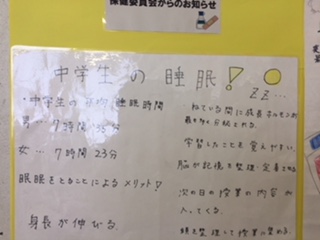 保健委員会からのお知らせ
中学生の睡眠!
ZZ…
・中学生の平均睡眠時間
男…7時間
女…7時間23分
睡眠をとることによるメリット!
身長が伸びる
ねている間に成長ホルモンが
学習したことを覚えやすい。
脳が記憶を整理・定着させる
次の日の授業の内容が
入ってくる。
頭を整理して授業に望める。